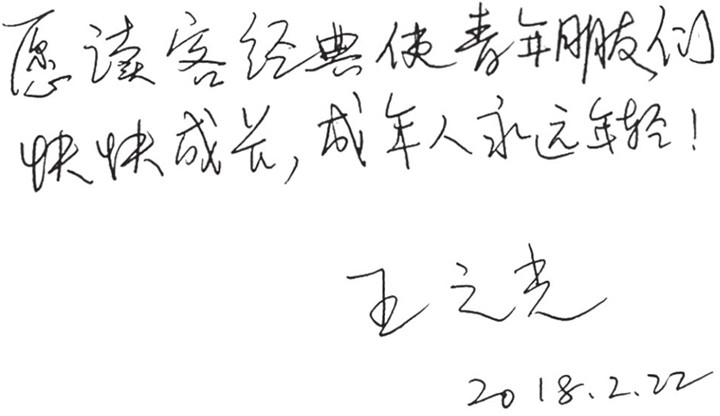 愿读客经典使青年朋友们
快快成长,成年人永远年轻!
王之光
2018.2.22